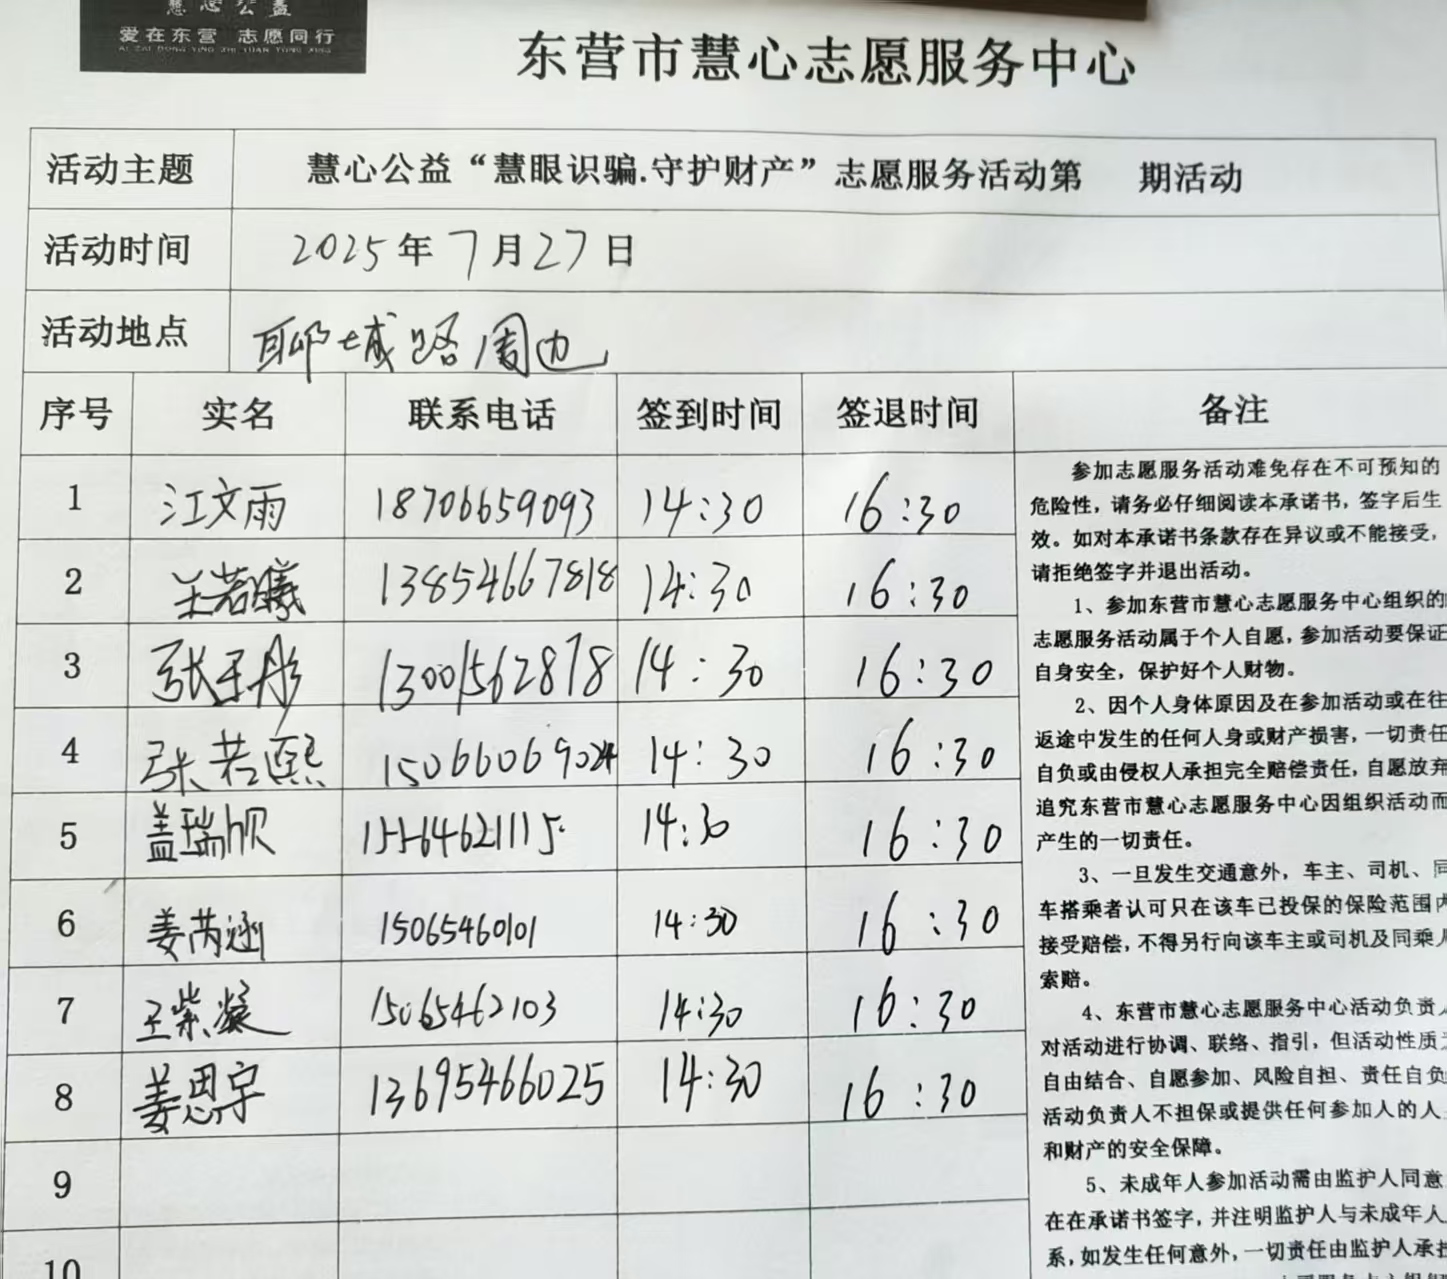 慧心公益
爱在东营 志愿同行
AI ZAI DONG YING ZHI YUAN TONG XING
东营市慧心志愿服务中心
活动主题 慧心公益“慧眼识骗.守护财产”志愿服务活动第 期活动
活动时间 2025年7月27日
活动地点 聊城路周边
序号 实名 联系电话 签到时间 签退时间 备注
1 江文雨 18706659093 14:30 16:30
2 王若曦 13854667818 14:30 16:30
3 张子彤 13001562878 14:30 16:30
4 张若熙 15066069024 14:30 16:30
5 盖瑞欣 15564621115 14:30 16:30
6 姜芮涵 15065460101 14:30 16:30
7 王紫凝 15065462103 14:30 16:30
8 姜恩宇 13695466025 14:30 16:30
9
10
参加志愿服务活动难免存在不可预知的
危险性，请务必仔细阅读本承诺书，签字后生
效。如对本承诺书条款存在异议或不能接受，
请拒绝签字并退出活动。
1、参加东营市慧心志愿服务中心组织的
志愿服务活动属于个人自愿，参加活动要保证
自身安全，保护好个人财物。
2、因个人身体原因及在参加活动或在往
返途中发生的任何人身或财产损害，一切责任
自负或由侵权人承担完全赔偿责任，自愿放弃
追究东营市慧心志愿服务中心因组织活动而
产生的一切责任。
3、一旦发生交通意外，车主、司机、同
车搭乘者认可只在该车已投保的保险范围内
接受赔偿，不得另行向该车主或司机及同乘人
索赔。
4、东营市慧心志愿服务中心活动负责人
对活动进行协调、联络、指引，但活动性质
自由结合、自愿参加、风险自担、责任自负
活动负责人不担保或提供任何参加人的人
和财产的安全保障。
5、未成年人参加活动需由监护人同意
在在承诺书签字，并注明监护人与未成年人
系，如发生任何意外，一切责任由监护人承担